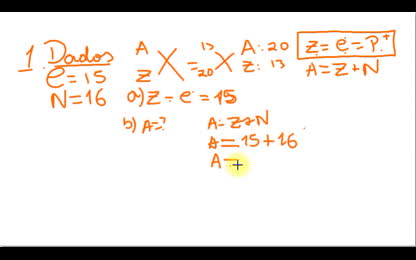 1 Dados
e = 15
N = 16
A
Z
X
15
=20
X
A: 20
Z: 13
Z = e = P+
A = Z + N
a) Z = e = 15
b) A = ?
A = Z + N
A = 15 + 16
A =